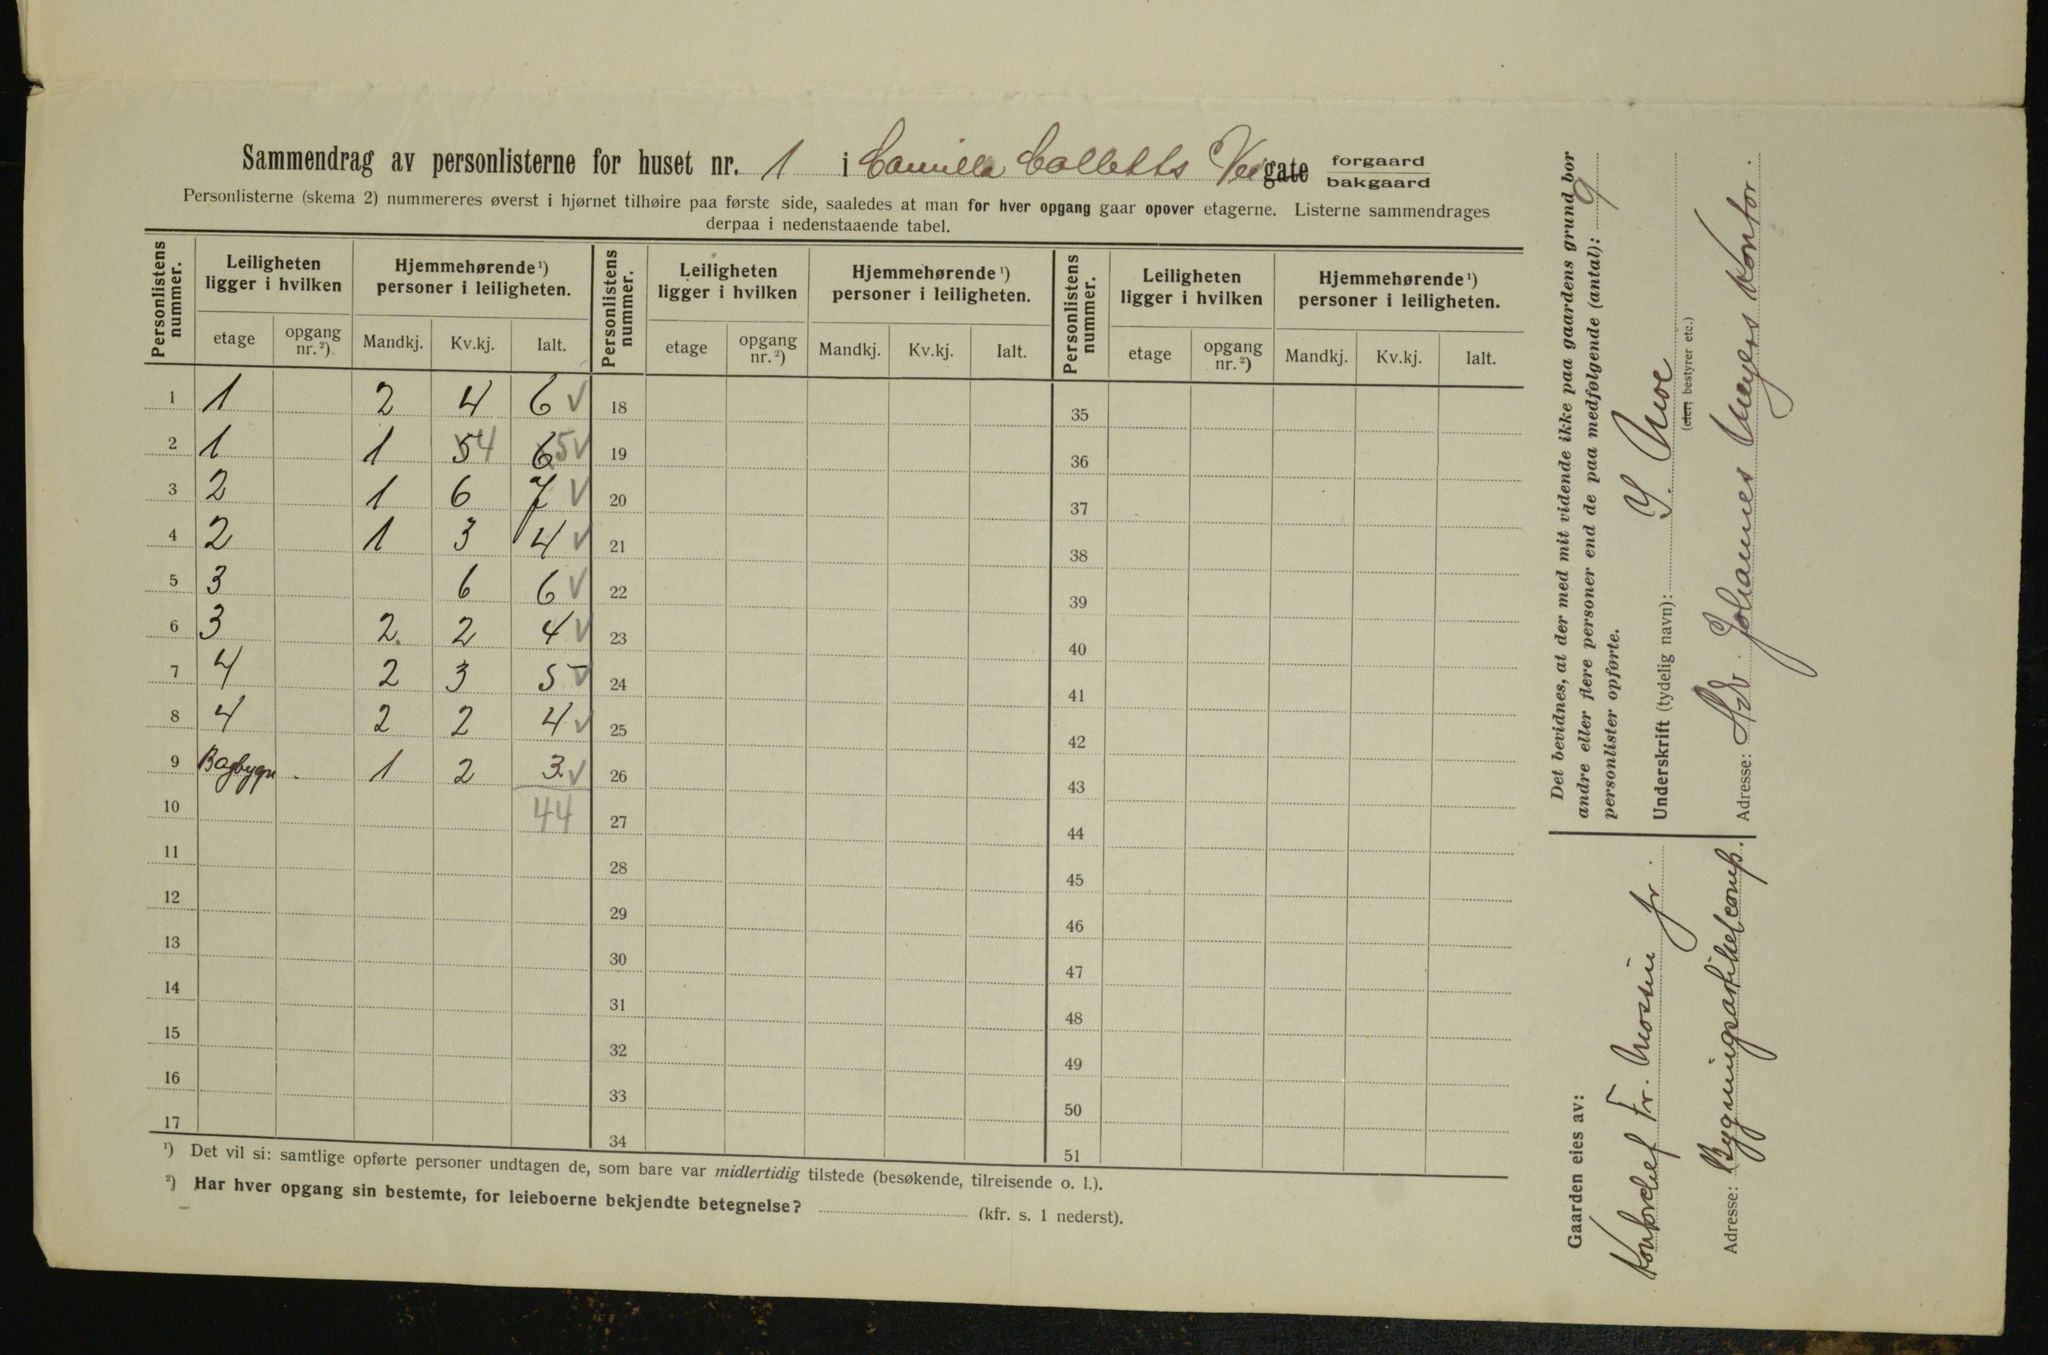 Sammendrag av personlisterne for huset nr. 1 i Camilla Colletts Vei gate forgaard bakgaard
Personlisterne (skema 2) nummereres øverst i hjørnet tilhøire paa første side, saaledes at man for hver opgang gaar opover etagerne. Listerne sammendrages
derpaa i nedenstaaende tabel.
Personlistens nummer. Leiligheten ligger i hvilken Hjemmehørende ¹) personer i leiligheten. Personlistens nummer. Leiligheten ligger i hvilken Hjemmehørende ¹) personer i leiligheten. Personlistens nummer. Leiligheten ligger i hvilken Hjemmehørende ¹) personer i leiligheten.
etage opgang nr. ²) Mandkj. Kv.kj. Ialt. etage opgang nr. ²) Mandkj. Kv.kj. Ialt. etage opgang nr. ²) Mandkj. Kv.kj. Ialt.
1 1 2 4 6 √ 18 35
2 1 1 5 4 6 5 √ 19 36
3 2 1 6 7 √ 20 37
4 2 1 3 4 √ 21 38
5 3 6 6 √ 22 39
6 3 2 2 4 √ 23 40
7 4 2 3 5 √ 24 41
8 4 2 2 4 √ 25 42
9 Bagbygn. 1 2 3 √ 26 43
10 44 27 44
11 28 45
12 29 46
13 30 47
14 31 48
15 32 49
16 33 50
17 34 51
¹) Det vil si: samtlige opførte personer undtagen de, som bare var midlertidig tilstede (besøkende, tilreisende o. l.).
²) Har hver opgang sin bestemte, for leieboerne bekjendte betegnelse? (kfr. s. 1 nederst).
Det bevidnes, at der med mit vidende ikke paa gaardens grund bor
andre eller flere personer end de paa medfølgende (antal): 9
personlister opførte.
Underskrift (tydelig navn): Moe
(eier, bestyrer etc.)
Adresse: Adr. Johannes Meyers Kontor.
Gaarden eies av:
Kontorchef Fr. Mosin jr.
Adresse: Bygningsartikelcomp.